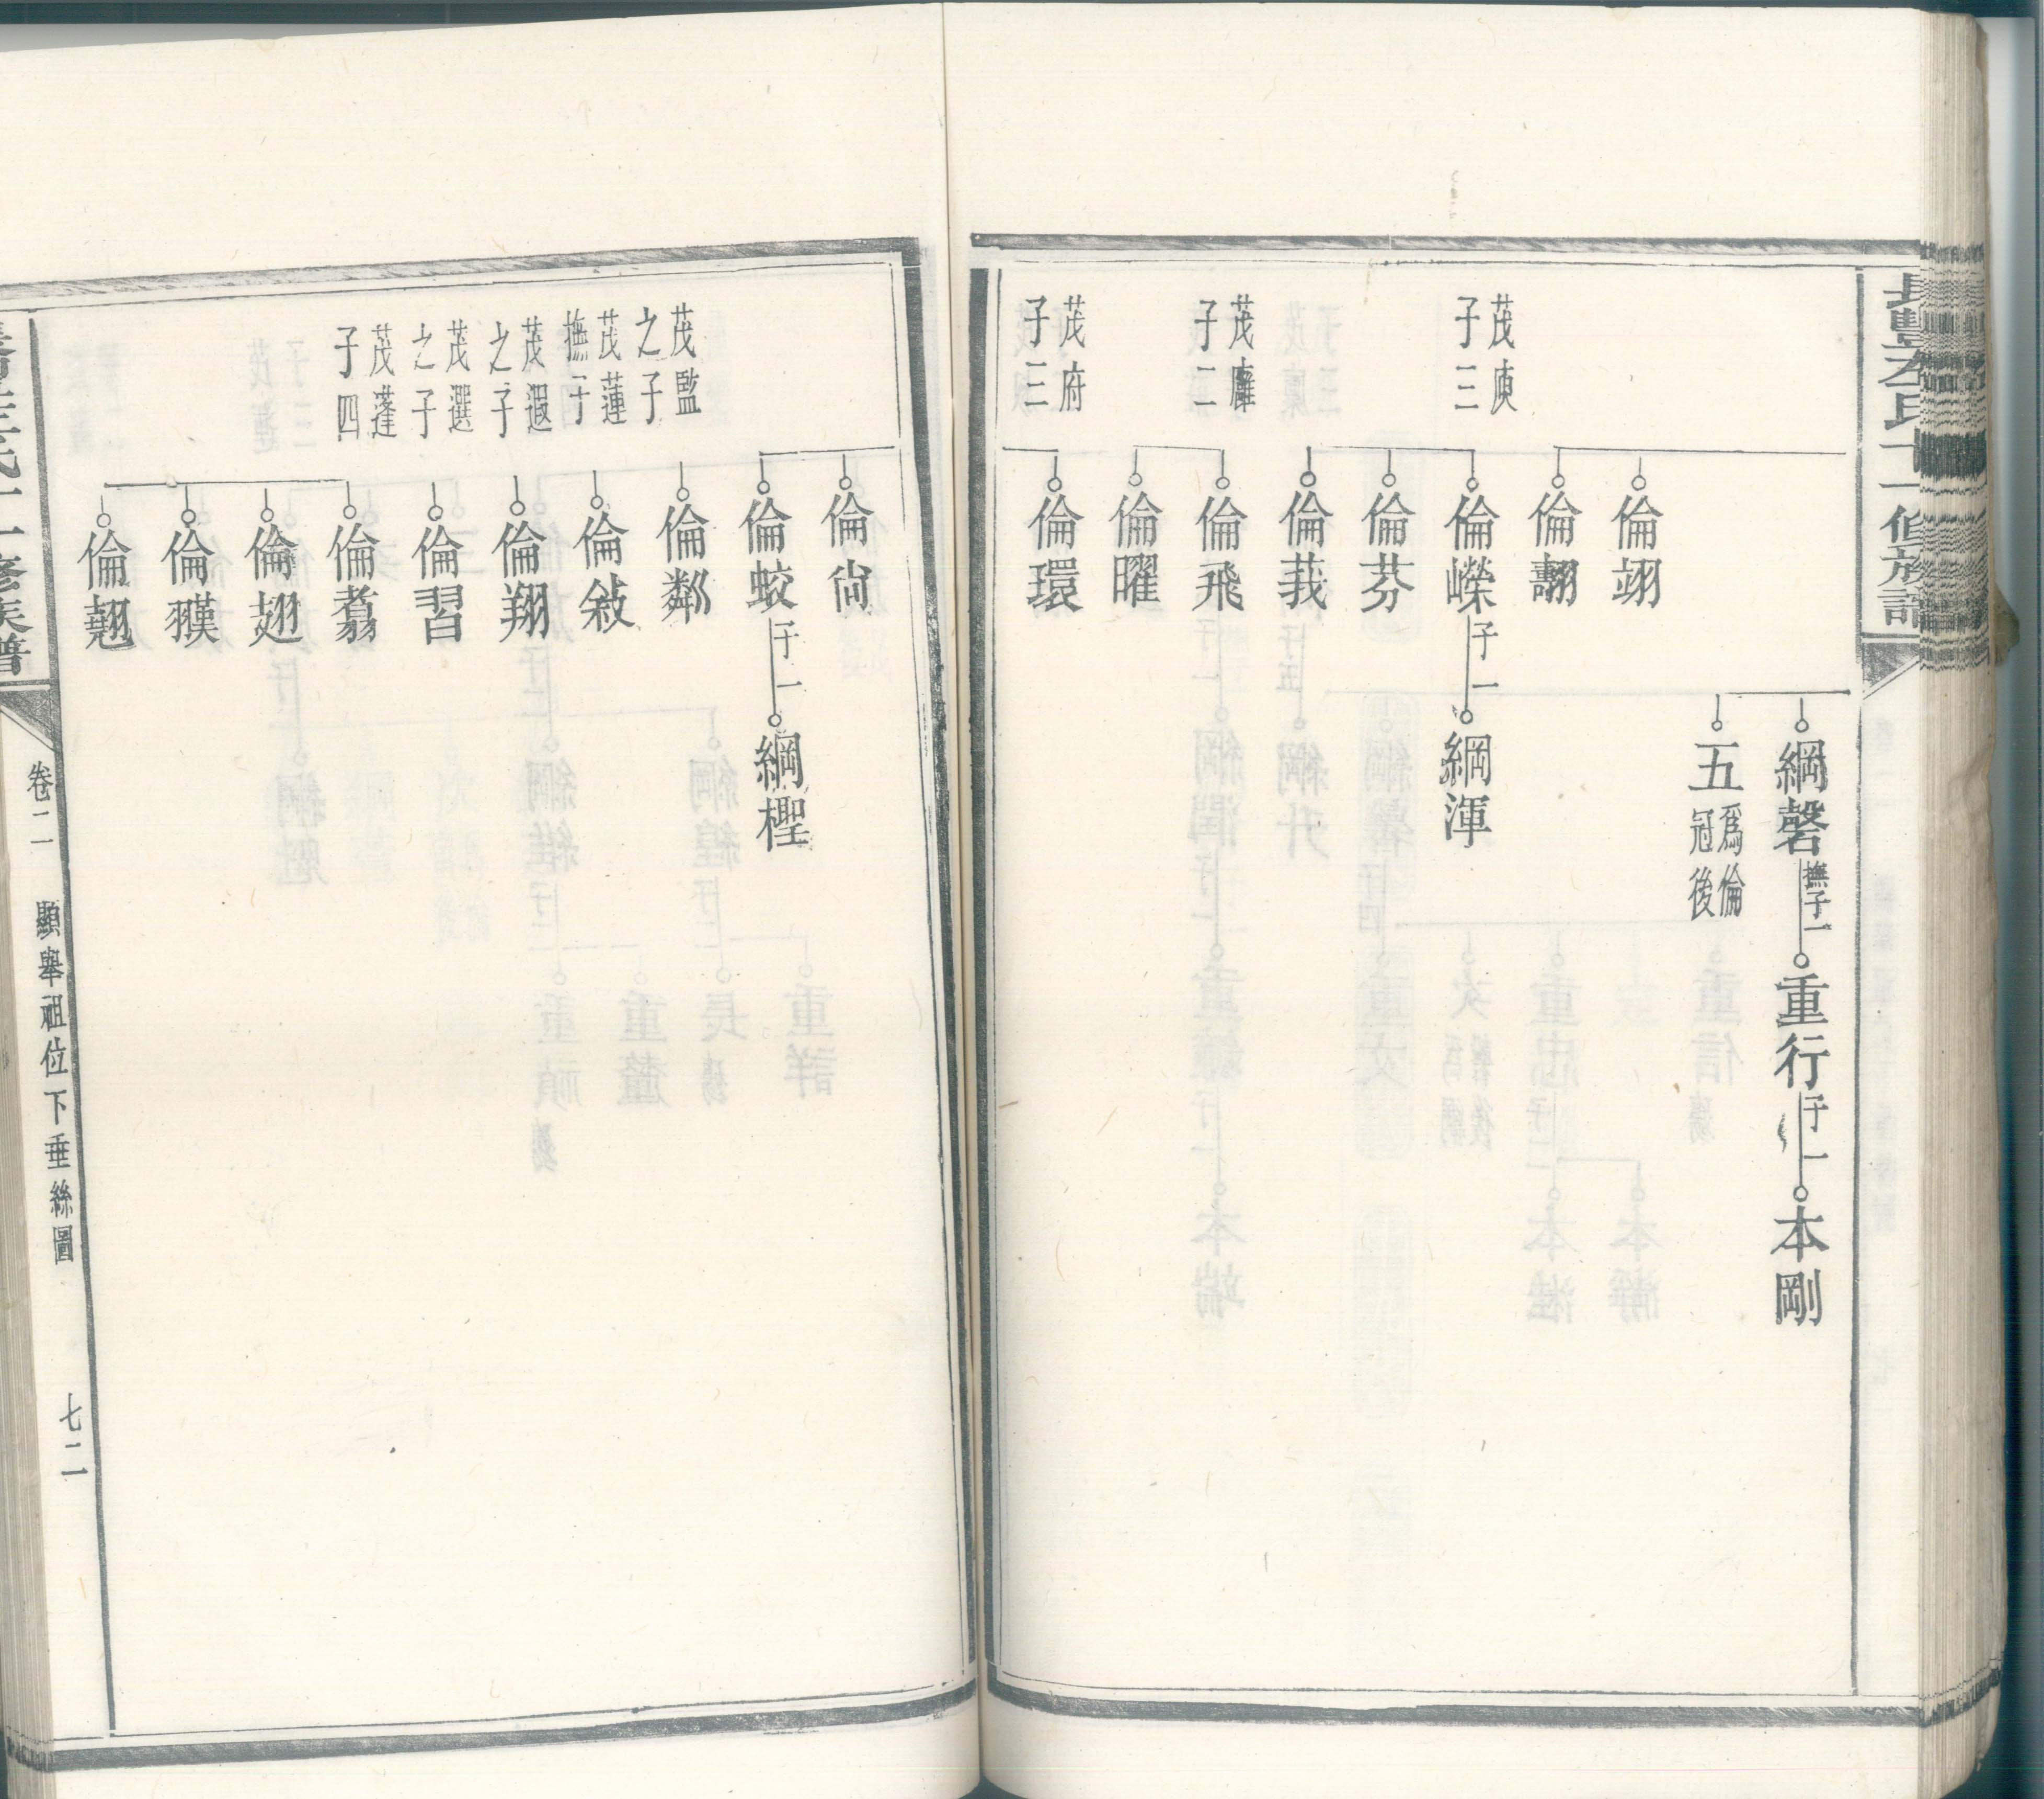 長豐左氏十一修族譜
倫翊
倫翿
茂庾
子三
倫嶸
子一
綱渾
倫芬
倫莪
茂廱
子二
倫飛
倫曜
茂府
子三
倫環
綱磬
撫子一
重行
子一
本剛
五
爲倫
冠後
倫尙
倫蛟
子一
綱檉
茂監
之子
倫鄰
茂蓮
撫子
倫敍
茂遐
之子
倫翔
茂選
之子
倫習
茂蓬
子四
倫翥
倫翅
倫
倫翹
氏十一修族譜
卷二
顯舉祖位下垂絲圖
七二